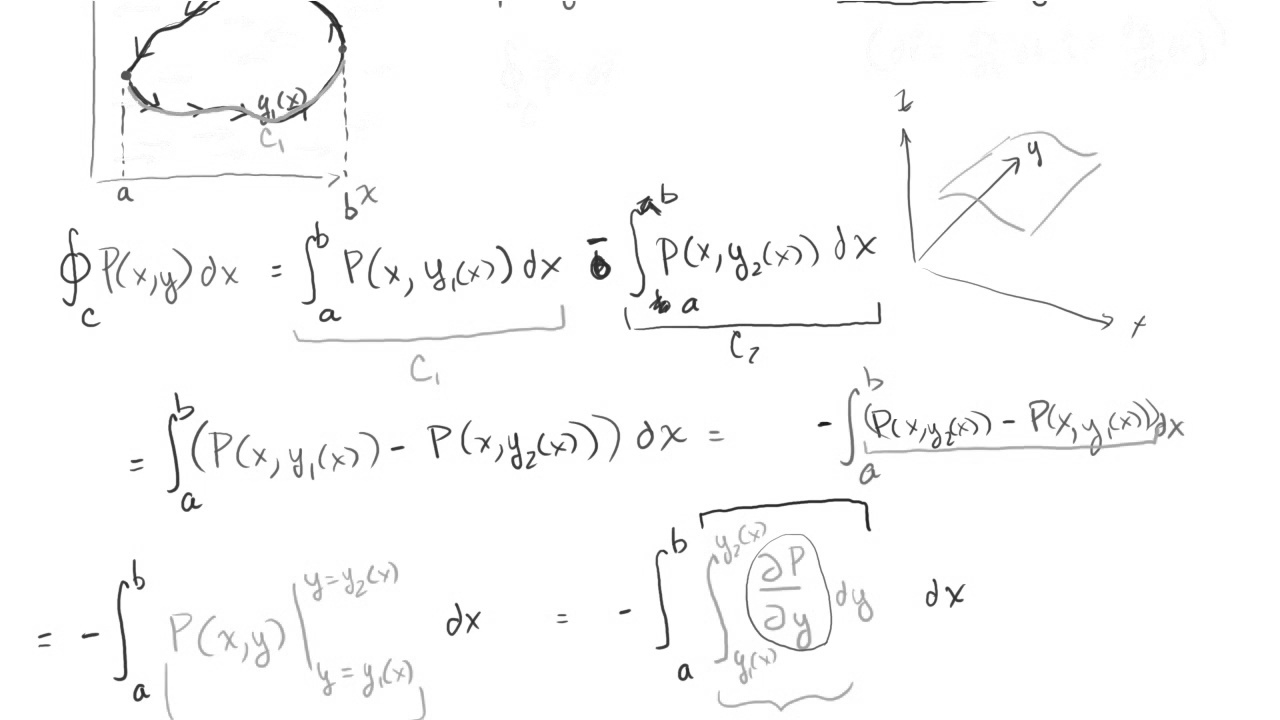 y₁(x)
C₁
a
b x
z
y
x
∮_C P(x,y) dx = ∫_a^b P(x, y₁(x)) dx - ∫_a^b P(x, y₂(x)) dx
C₁
C₂
= ∫_a^b (P(x, y₁(x)) - P(x, y₂(x))) dx = - ∫_a^b (P(x, y₂(x)) - P(x, y₁(x))) dx
= - ∫_a^b P(x,y) |_{y = y₁(x)}^{y = y₂(x)} dx = - ∫_a^b ∫_{y₁(x)}^{y₂(x)} ∂P/∂y dy dx